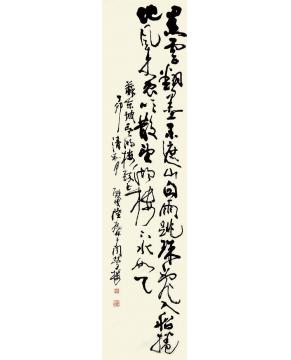 黑雲翻墨未遮山白雨跳珠亂入船捲
地風來忽吹散望湖樓下水如天
蘇東坡望湖樓
丁卯清